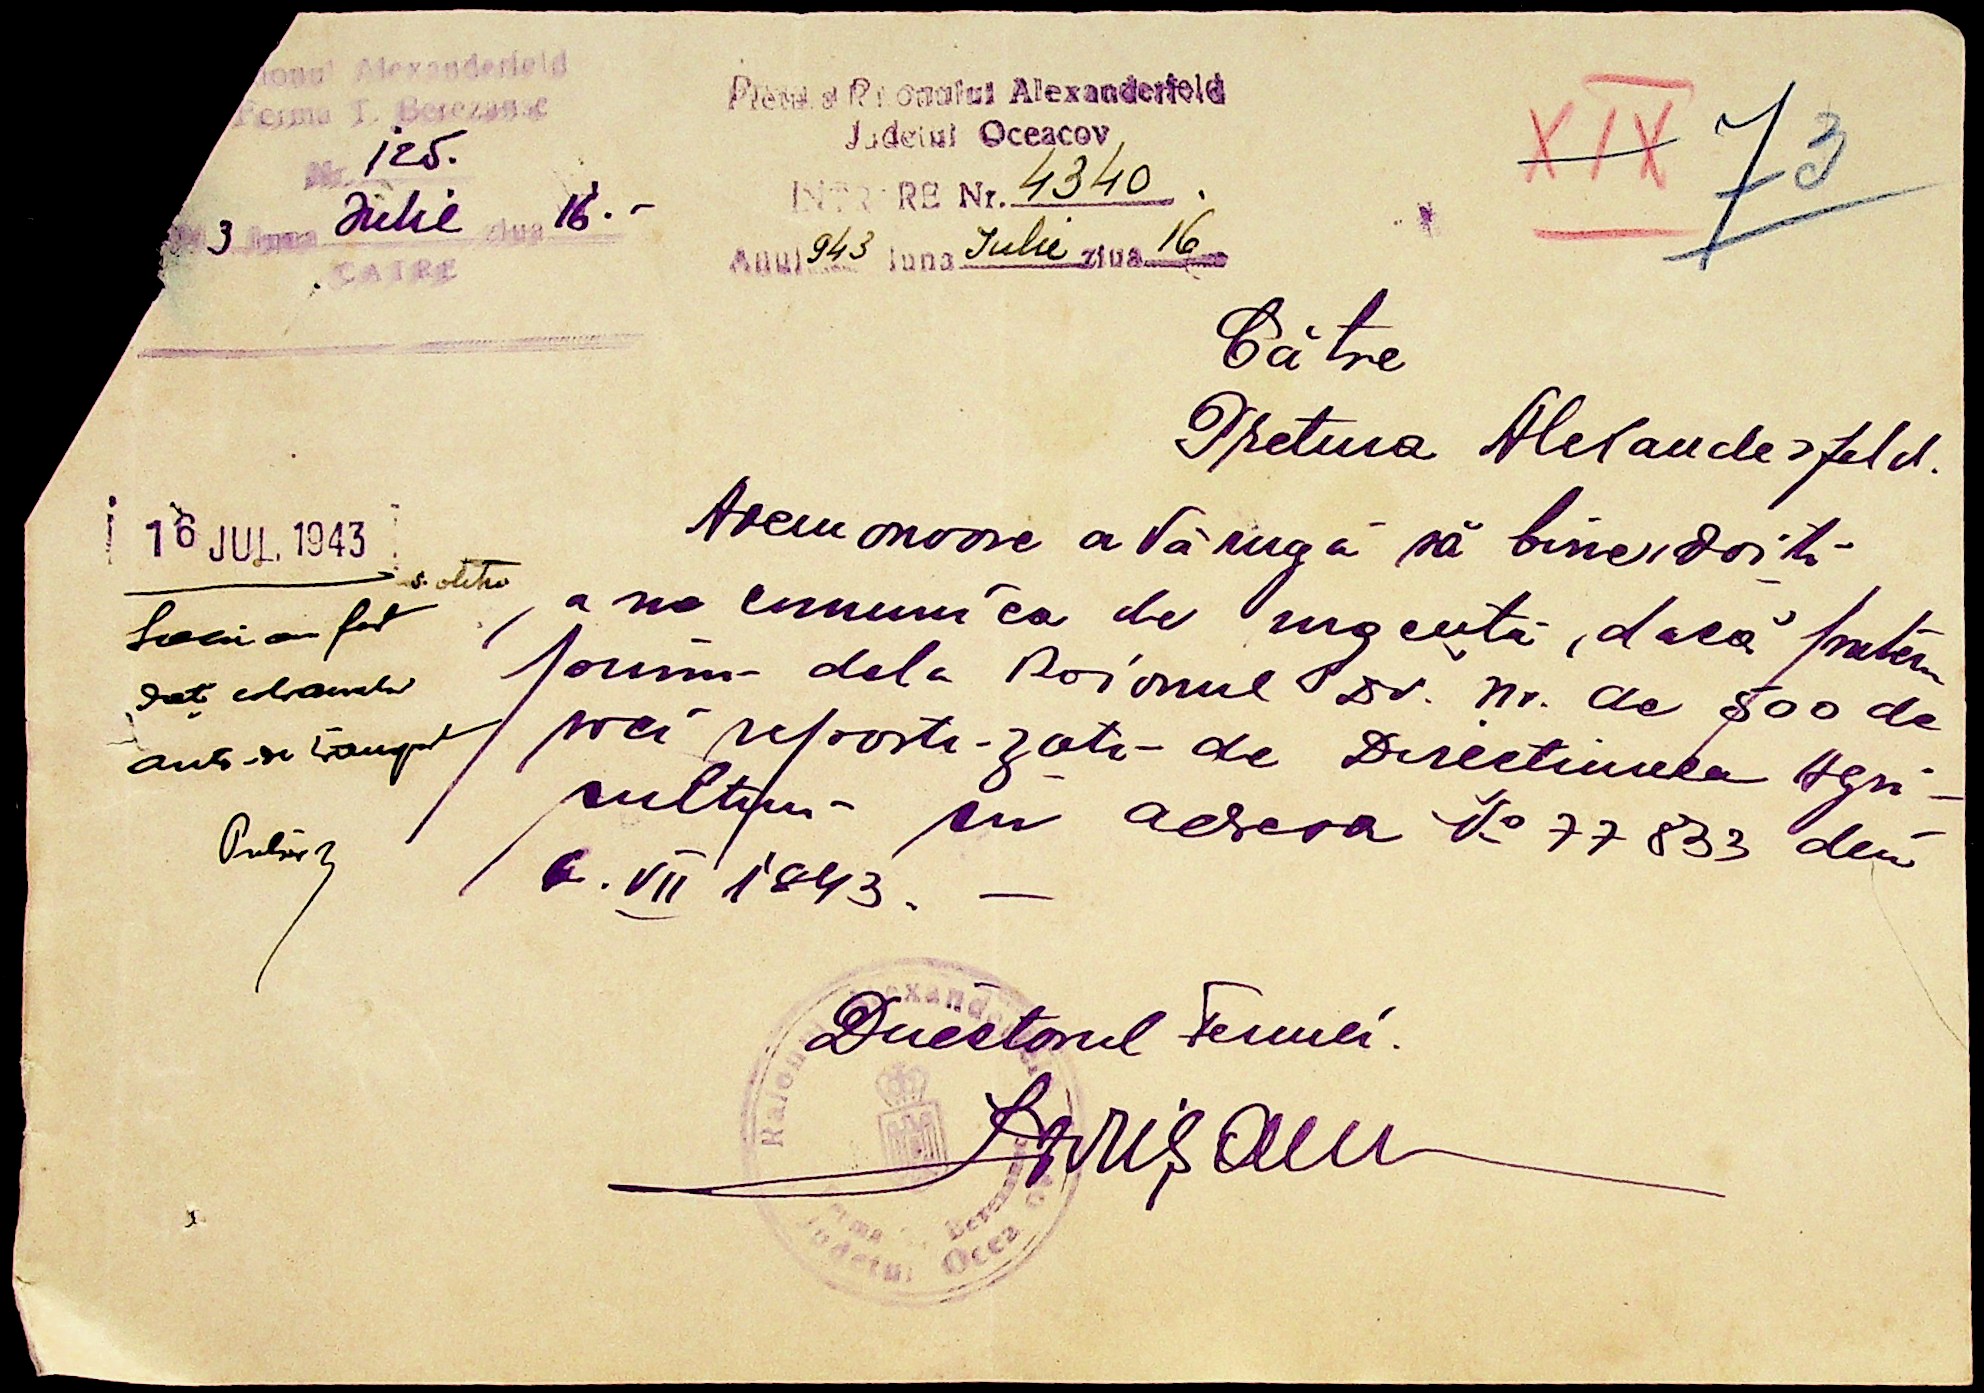 ionul Alexanderfeld
Ferma T. Berezanc
Nr. 125.
3 luna Iulie ziua 16.-
CATRE
Pretura Raionului Alexanderfeld
Județul Oceacov
INTRARE Nr. 4340.
Anul 943 luna Iulie ziua 16
XIX 73
Către
Pretura Alexanderfeld.
Avem onoare a Vă rugă să binevoiti
a ne comunica de urgență, dacă putem
primi dela Raionul Dv. nr. de 500 de
saci repartizati de Directiunea Agri-
culturii cu adresa No 77833 din
6. VII 1943. —
16 JUL. 1943
Sacii au fost
dați
Directorul Fermei.
Raionul Alexanderfeld
Ferma T. Berezanc
Județul Oceacov